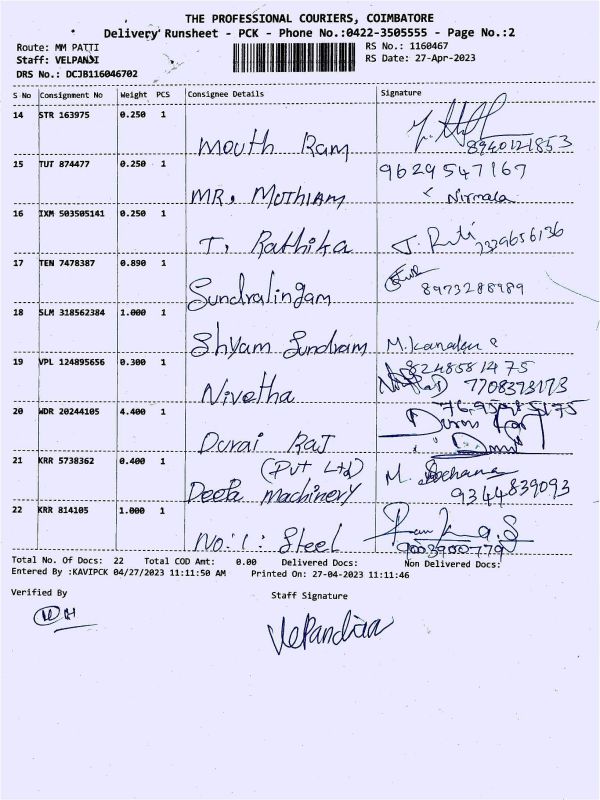 THE PROFESSIONAL COURIERS, COIMBATORE
Delivery Runsheet - PCK - Phone No.:0422-3505555 - Page No.:2
Route: MM PATTI RS No.: 1160467
Staff: VELPANDI RS Date: 27-Apr-2023
DRS No.: DCJB116046702
S No Consignment No Weight PCS Consignee Details Signature
14 STR 163975 0.250 1
Mouth Ram 8940121853
15 TUT 874477 0.250 1 9629547167
MR. MUTHIAM Nirmala
16 IXM 503505141 0.250 1
T. Rathika J. 7339656136
17 TEN 7478387 0.890 1
Sundralingam 8973288989
18 SLM 318562384 1.000 1
Shyam Sundram M.
19 VPL 124895656 0.300 1 8248581475
Nivetha 7708373173
20 WDR 20244105 4.400 1
Durai Raj
21 KRR 5738362 0.400 1 (Pvt Ltd) M.
Deepa machinery 9344839093
22 KRR 814105 1.000 1
No:1: Steel 9003900779
Total No. Of Docs: 22 Total COD Amt: 0.00 Delivered Docs: Non Delivered Docs:
Entered By :KAVIPCK 04/27/2023 11:11:50 AM Printed On: 27-04-2023 11:11:46
Verified By Staff Signature